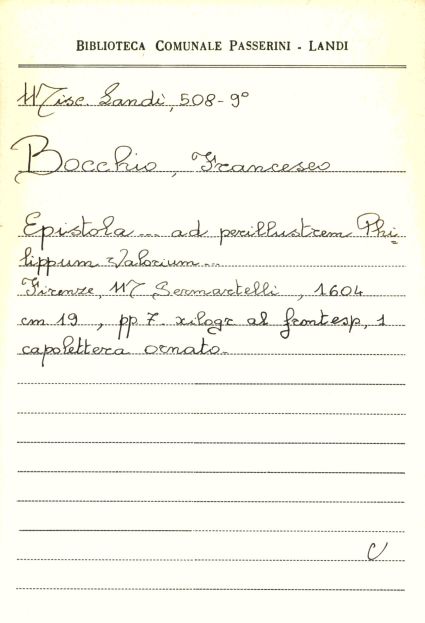 BIBLIOTECA COMUNALE PASSERINI - LANDI
Misc. Landi, 508-9°
Bocchio, Francesco
Epistola ... ad perillustrem Phi=
lippum Valorium ...
Firenze, M Sermartelli, 1604
cm 19, pp 7. xilogr al frontesp, 1
capolettera ornato.
C